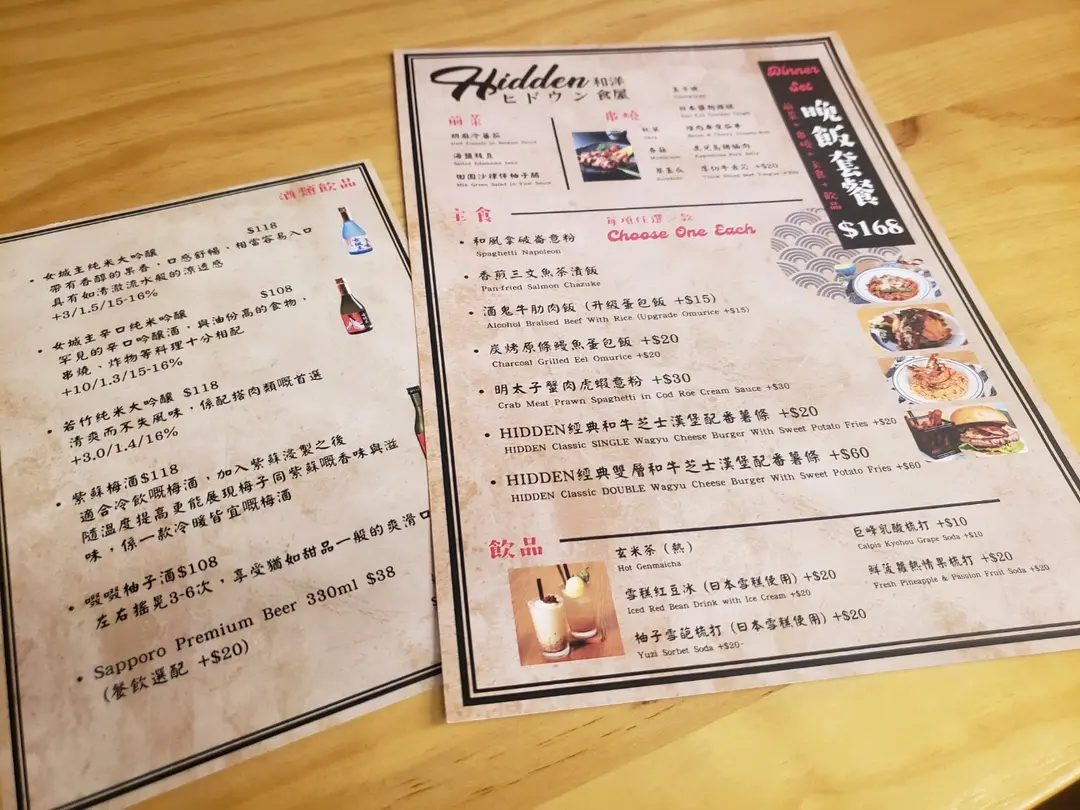 酒類飲品
$118
• 女城主純米大吟釀
帶有香醇的果香,口感舒暢,相當容易入口
具有如清澈流水般的涼透感
+3/1.5/15-16%
$108
• 女城主辛口純米吟釀
罕見的辛口吟釀酒,與油份高的食物、
串燒、炸物等料理十分相配
+10/1.3/15-16%
• 若竹純米大吟釀 $118
清爽而不失風味,係配搭肉類嘅首選
+3.0/1.4/16%
• 紫蘇梅酒$118
適合冷飲嘅梅酒,加入紫蘇浸製之後
隨溫度提高更能展現梅子同紫蘇嘅香味與滋
味,係一款冷暖皆宜嘅梅酒
• 啜啜柚子酒$108
左右搖晃3-6次,享受猶如甜品一般的爽滑口
• Sapporo Premium Beer 330ml $38
(餐飲選配 +$20)
Hidden 和洋
ヒドウン 食屋
前菜
胡麻冷蕃茄
海鹽枝豆
Salted Edamame
田園沙律伴柚子醋
Mix Green Salad in Yuzi Sauce
串燒
秋葵
Okra
香菇
Mushroom
翠玉瓜
Zucchini
日本醬燒雞頸
Bacon & Cherry Tomato
鹿兒島豬腩肉
Kagoshima Pork Belly
厚切牛舌芯 +$20
Thick Sliced Beef Tongue +$20
Dinner
Set
晚飯套餐
前菜+串燒+主食+飲品
$168
主食
每項任選一款
Choose One Each
• 和風拿破崙意粉
Spaghetti Napoleon
• 香煎三文魚茶漬飯
Pan-fried Salmon Chazuke
• 酒鬼牛肋肉飯 (升級蛋包飯 +$15)
Alcohol Braised Beef With Rice (Upgrade Omurice +$15)
• 炭烤原條鰻魚蛋包飯 +$20
Charcoal Grilled Eel Omurice +$20
• 明太子蟹肉虎蝦意粉 +$30
Crab Meat Prawn Spaghetti in Cod Roe Cream Sauce +$30
• HIDDEN經典和牛芝士漢堡配番薯條 +$20
HIDDEN Classic SINGLE Wagyu Cheese Burger With Sweet Potato Fries +$20
• HIDDEN經典雙層和牛芝士漢堡配番薯條 +$60
HIDDEN Classic DOUBLE Wagyu Cheese Burger With Sweet Potato Fries +$60
飲品
玄米茶 (熱)
Hot Genmaicha
雪糕紅豆冰 (日本雪糕使用) +$20
Iced Red Bean Drink with Ice Cream +$20
柚子雪葩梳打 (日本雪糕使用) +$20
Yuzi Sorbet Soda +$20-
巨峰乳酸梳打 +$10
Calpis Kyohou Grape Soda +$10
鮮菠蘿熱情果梳打 +$20
Fresh Pineapple & Passion Fruit Soda +$20